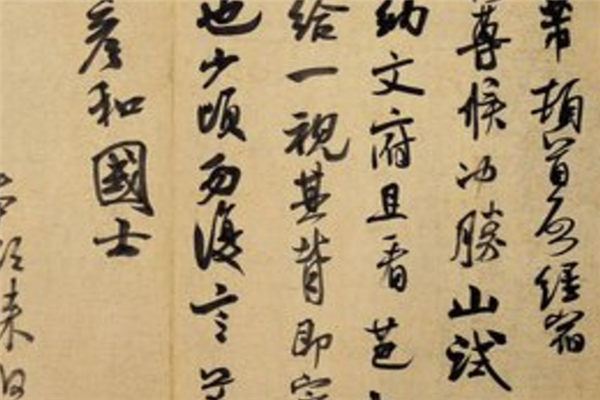 芾頓首啓經宿
尊候冲勝山試
納文府且看芭
給一視其背即定
也少頃勿復言
彥和國士
本欲來